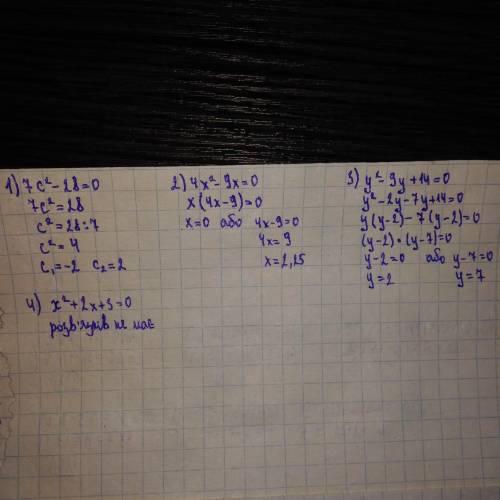 1) 7c² - 28 = 0
7c² = 28
c² = 28 : 7
c² = 4
c₁ = -2 c₂ = 2
2) 4x² - 9x = 0
x (4x - 9) = 0
x = 0 або 4x - 9 = 0
4x = 9
x = 2,25
3) y² - 9y + 14 = 0
y² - 2y - 7y + 14 = 0
y (y - 2) - 7 (y - 2) = 0
(y - 2) · (y - 7) = 0
y - 2 = 0 або y - 7 = 0
y = 2 y = 7
4) x² + 2x + 3 = 0
розв'язків не має